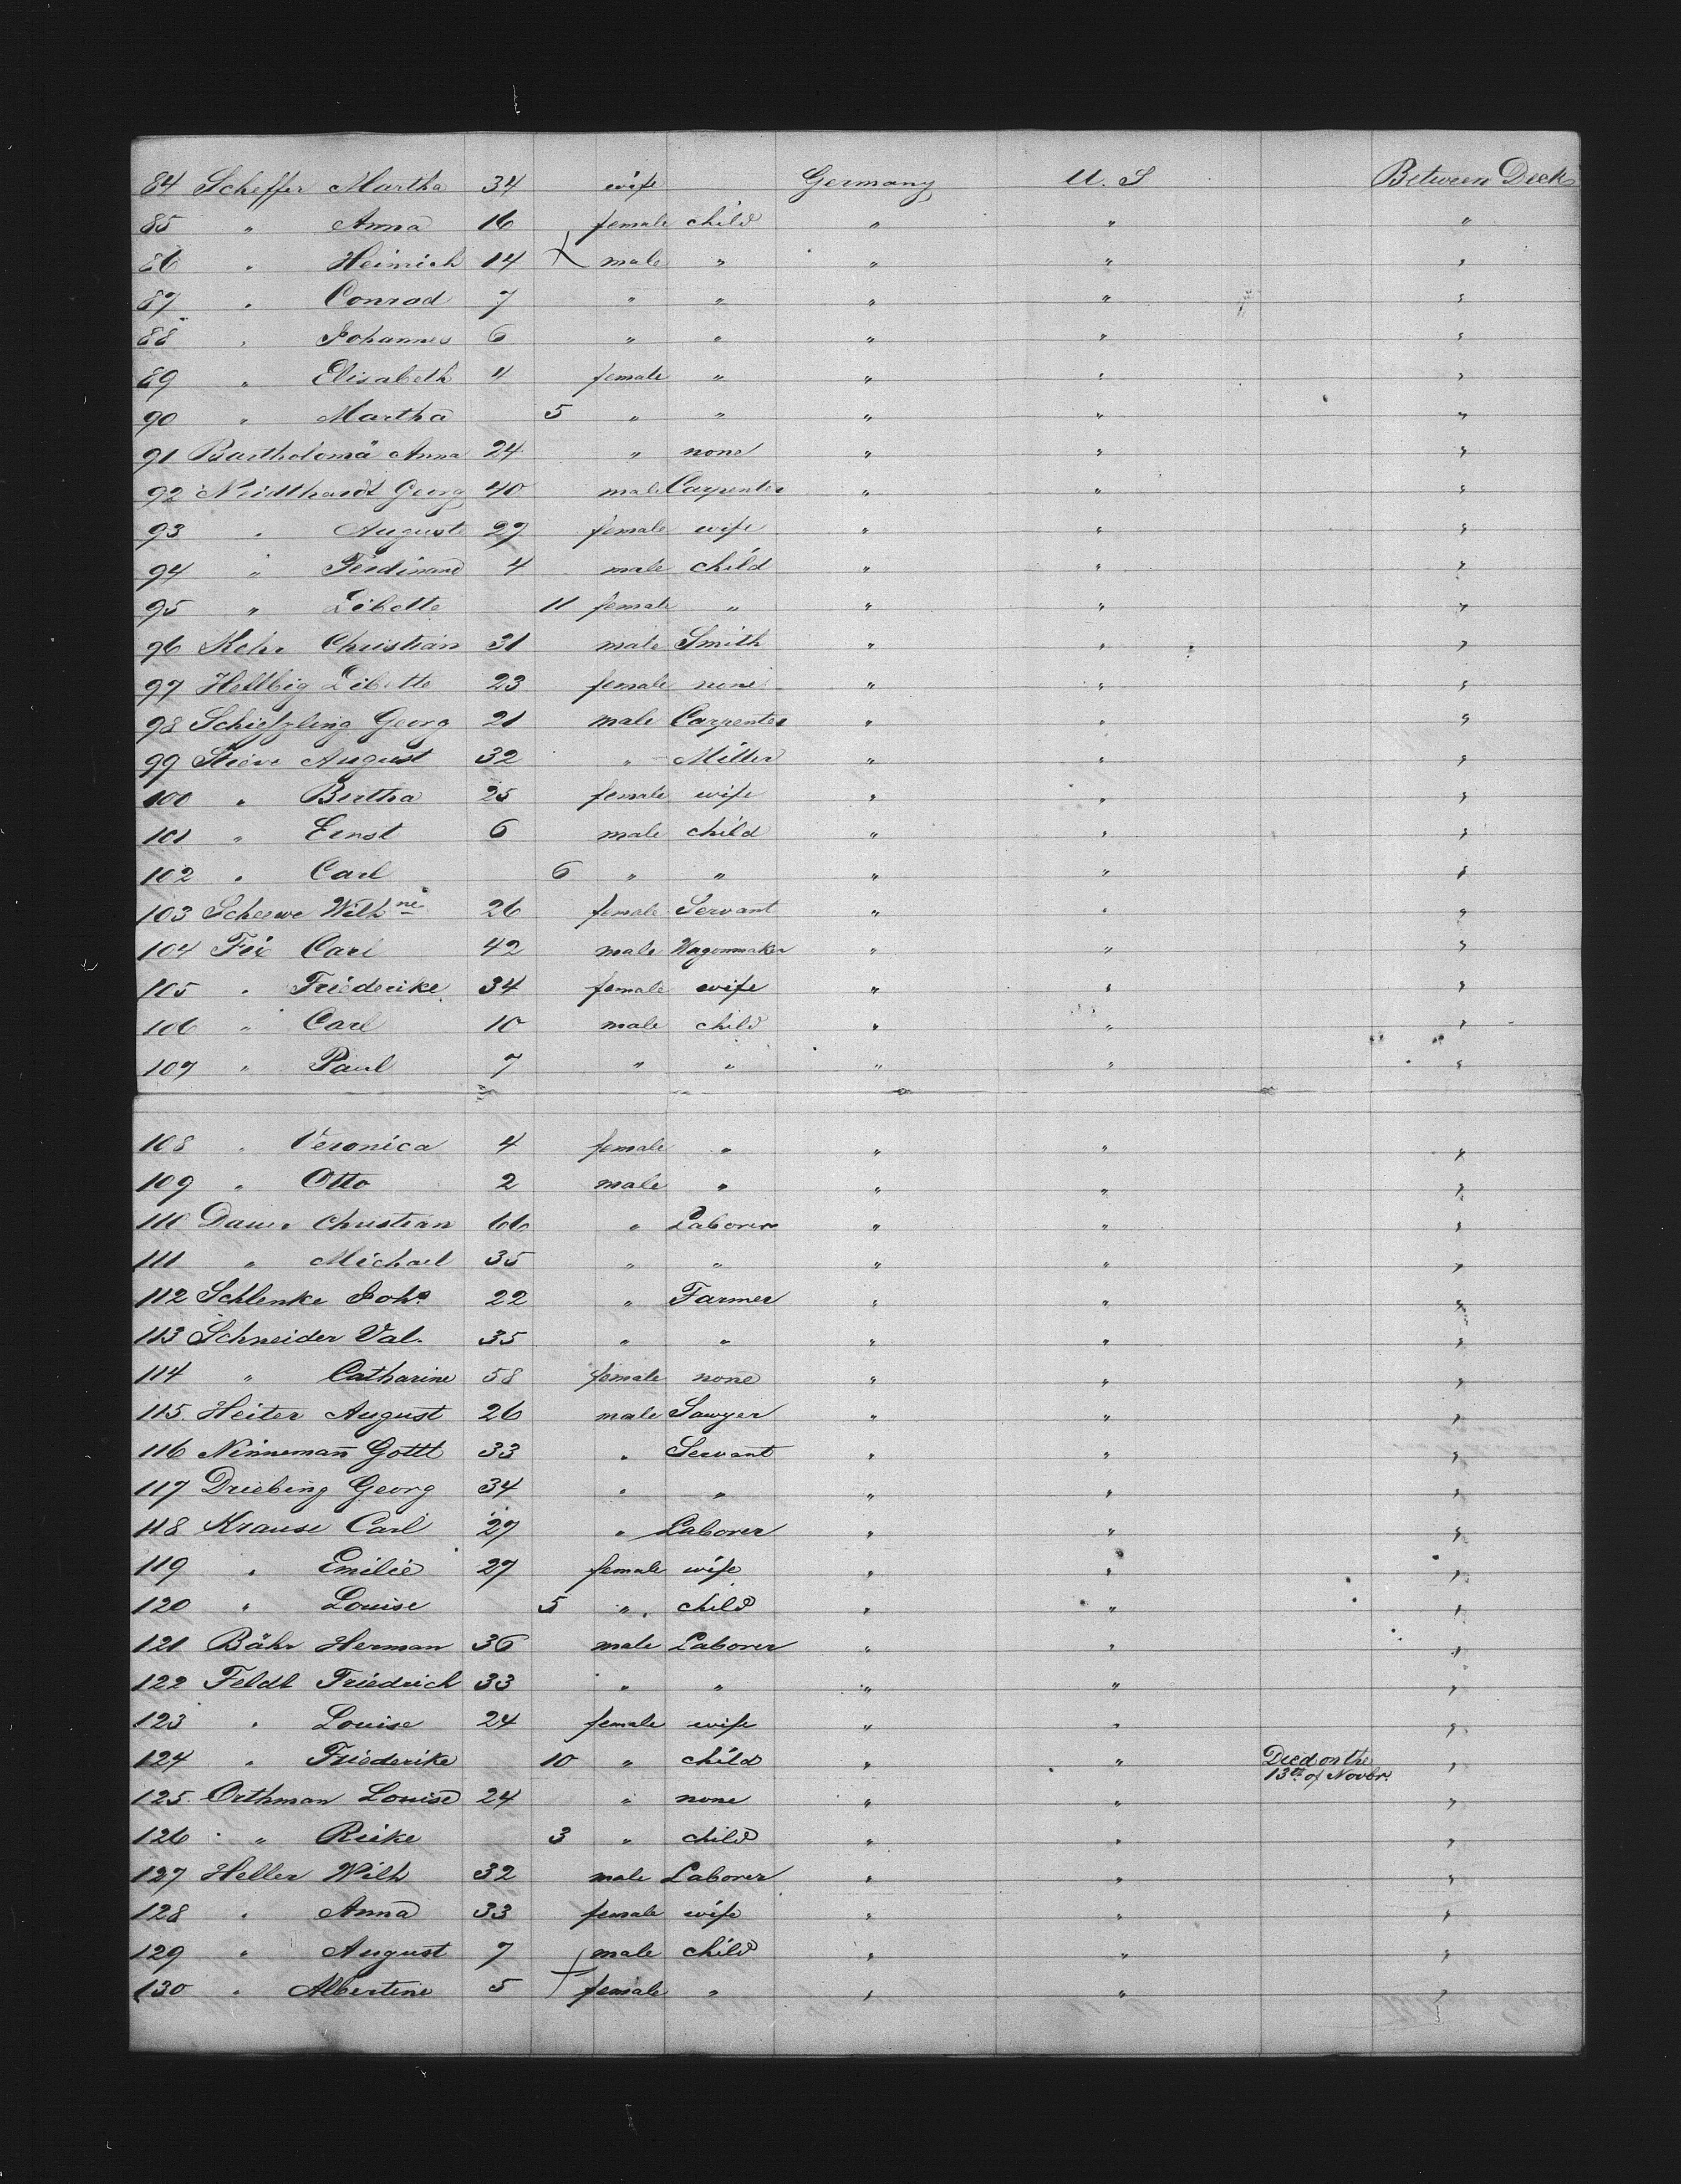 84 Scheffer Martha 34 wife Germany U. S Between Deck
85 " Anna 16 female child " " "
86 " Heinrich 14 male " " " "
87 " Conrad 7 " " " " "
88 " Johannes 6 " " " " "
89 " Elisabeth 4 female " " " "
90 " Martha 5 " " " " "
91 Bartholomä Anna 24 " none " " "
92 Neidthardt Georg 40 male Carpenter " " "
93 " Auguste 27 female wife " " "
94 " Ferdinand 4 male child " " "
95 " Libette 11 female " " " "
96 Kehr Christian 31 male Smith " " "
97 Hellbig Libette 23 female none " " "
98 Georg 21 male Carpenter " " "
99 August 32 " Miller " " "
100 " Bertha 25 female wife " " "
101 " Ernst 6 male child " " "
102 " Carl 6 " " " " "
103 Scheewe Wilhne 26 female Servant " " "
104 Fix Carl 42 male Wagonmaker " " "
105 " Friederike 34 female wife " " "
106 " Carl 10 male child " " "
107 " Paul 7 " " " " "
108 " Veronica 4 female " " " "
109 " Otto 2 male " " " "
110 Dauer Christian 66 " Laborer " " "
111 " Michael 35 " " " " "
112 Schlenke Joh. 22 " Farmer " " "
113 Schneider Val. 35 " " " " "
114 " Catharine 58 female none " " "
115. Heiter August 26 male Sawyer " " "
116 Ninneman̄ Gottl 33 " Servant " " "
117 Driebing Georg 34 " " " " "
118 Krause Carl 27 " Laborer " " "
119 " Emilie 27 female wife " " "
120 " Louise 5 " child " " "
121 Bähr Herman 36 male Laborer " " "
122 Feldt Friedrich 33 " " " " "
123 " Louise 24 female wife " " "
124 " Friederike 10 " child " " Died on the 13th of Novbr. "
125. Orthman Louise 24 " none " " "
126 " Rieke 3 " child " " "
127 Heller Wilh 32 male Laborer " " "
128 " Anna 33 female wife " " "
129 " August 7 male child " " "
130 " Albertine 5 female " " " "